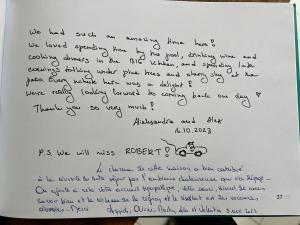 We had such an amazing time here!
We loved spending time by the pool, drinking wine and
cooking dinners in the BIG kitchen, and spending late
evenings talking under pine trees and starry sky at the
patio. Every minute here was a delight!
We're really looking forward to coming back one day ♡
Thank you so very much!
Aleksandra and Alex
16.10.2023
P.S. We will miss ROBERT!
Le charme de cette maison a bien contribué
à la réussite de notre séjour par l'ambiance chaleureuse qui s'en dégage.
On ajoute à cela votre accueil sympathique,
savoir bien et la richesse de la région et le résultat est des vacances
Merci
37